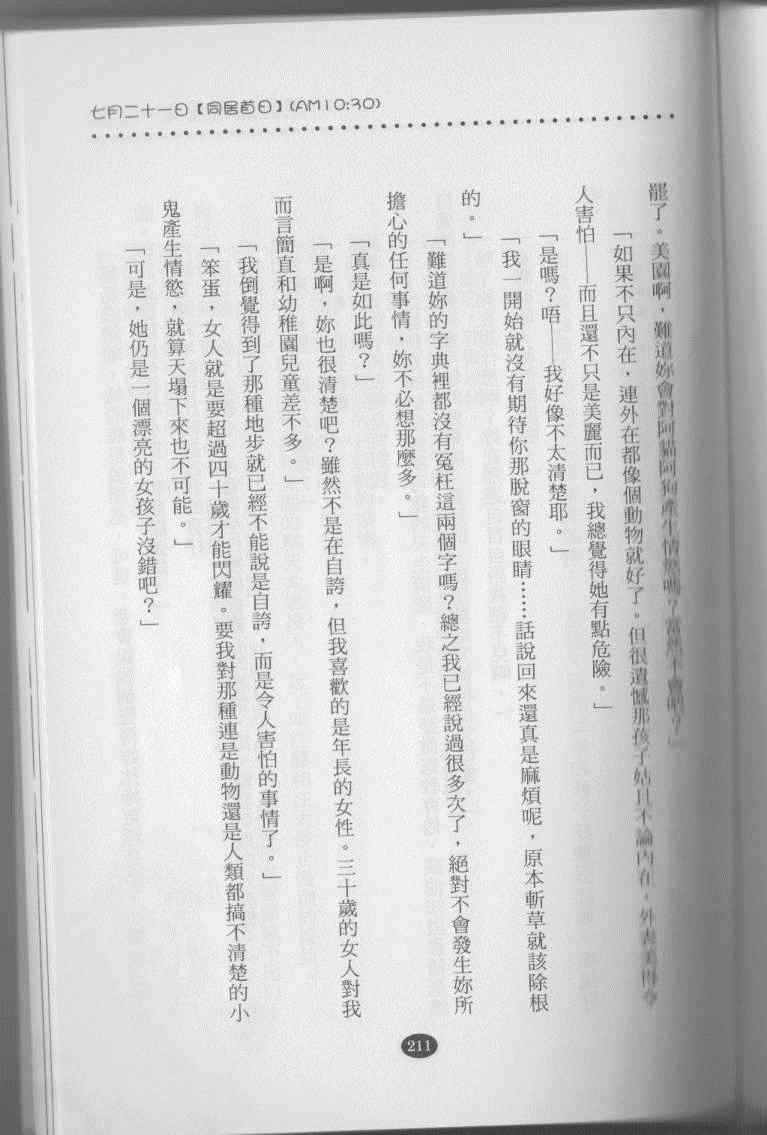 七月二十一日【同居首日】(AM10:30)
罷了。美園啊，難道妳會對阿貓阿狗產生情慾嗎？當然不會吧？」
「如果不只內在，連外在都像個動物就好了。但很遺憾那孩子姑且不論內在，外表美得令
人害怕——而且還不只是美麗而已，我總覺得她有點危險。」
「是嗎？唔——我好像不太清楚耶。」
「我一開始就沒有期待你那脫窗的眼睛……話說回來還真是麻煩呢，原本斬草就該除根
的。」
「難道妳的字典裡都沒有冤枉這兩個字嗎？總之我已經說過很多次了，絕對不會發生妳所
擔心的任何事情，妳不必想那麼多。」
「真是如此嗎？」
「是啊，妳也很清楚吧？雖然不是在自誇，但我喜歡的是年長的女性。三十歲的女人對我
而言簡直和幼稚園兒童差不多。」
「我倒覺得到了那種地步就已經不能說是自誇，而是令人害怕的事情了。」
「笨蛋，女人就是要超過四十歲才能閃耀。要我對那種連是動物還是人類都搞不清楚的小
鬼產生情慾，就算天塌下來也不可能。」
「可是，她仍是一個漂亮的女孩子沒錯吧？」
211